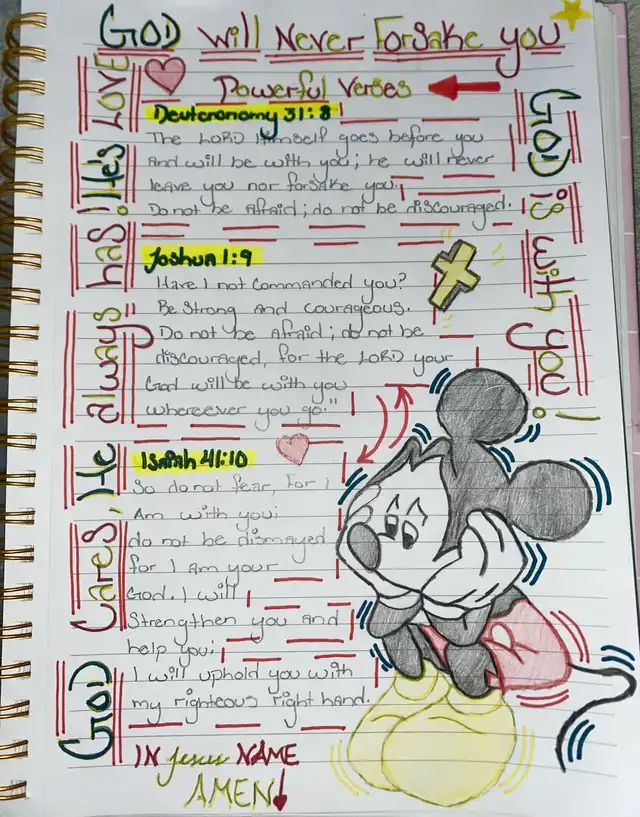 GOD will Never Forsake you
Powerful Verses
Deuteronomy 31:8
The LORD Himself goes before you
and will be with you; he will never
leave you nor forsake you.
Do not be afraid; do not be discouraged.
Joshua 1:9
Have I not commanded you?
Be strong and courageous.
Do not be afraid; do not be
discouraged, for the LORD your
God will be with you
whereever you go."
Isaiah 41:10
So do not fear, for I
Am with you;
do not be dismayed
for I am your
God. I will
Strengthen you and
help you;
I will uphold you with
my righteous right hand.
IN Jesus NAME
AMEN
GOD Cares, He always has! He's LOVE
GOD is with you!
R